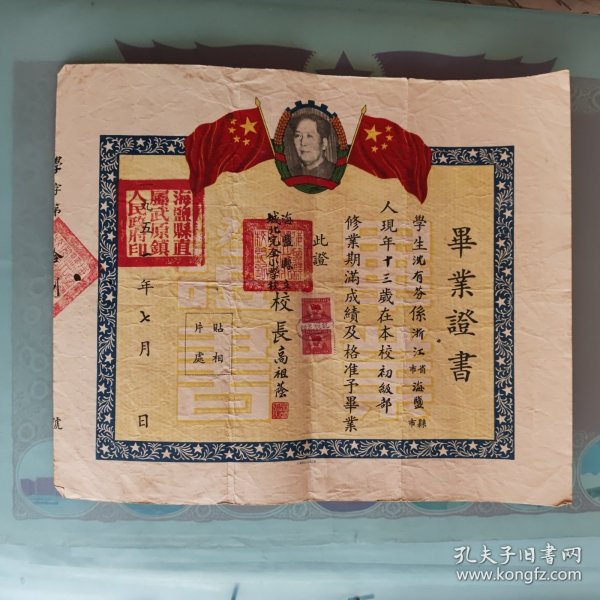 畢業證書
學生沈有芬係浙江省市海鹽縣市
人現年十三歲在本校初級部
修業期滿成績及格准予畢業
此證
海鹽縣立
城北完全小學校
校長高祖蔭
貼相
片處
一九五一年七月 日
海鹽縣直
屬武原鎮
人民政府印
學字第
號
孔夫子旧书网
www.kongfz.com